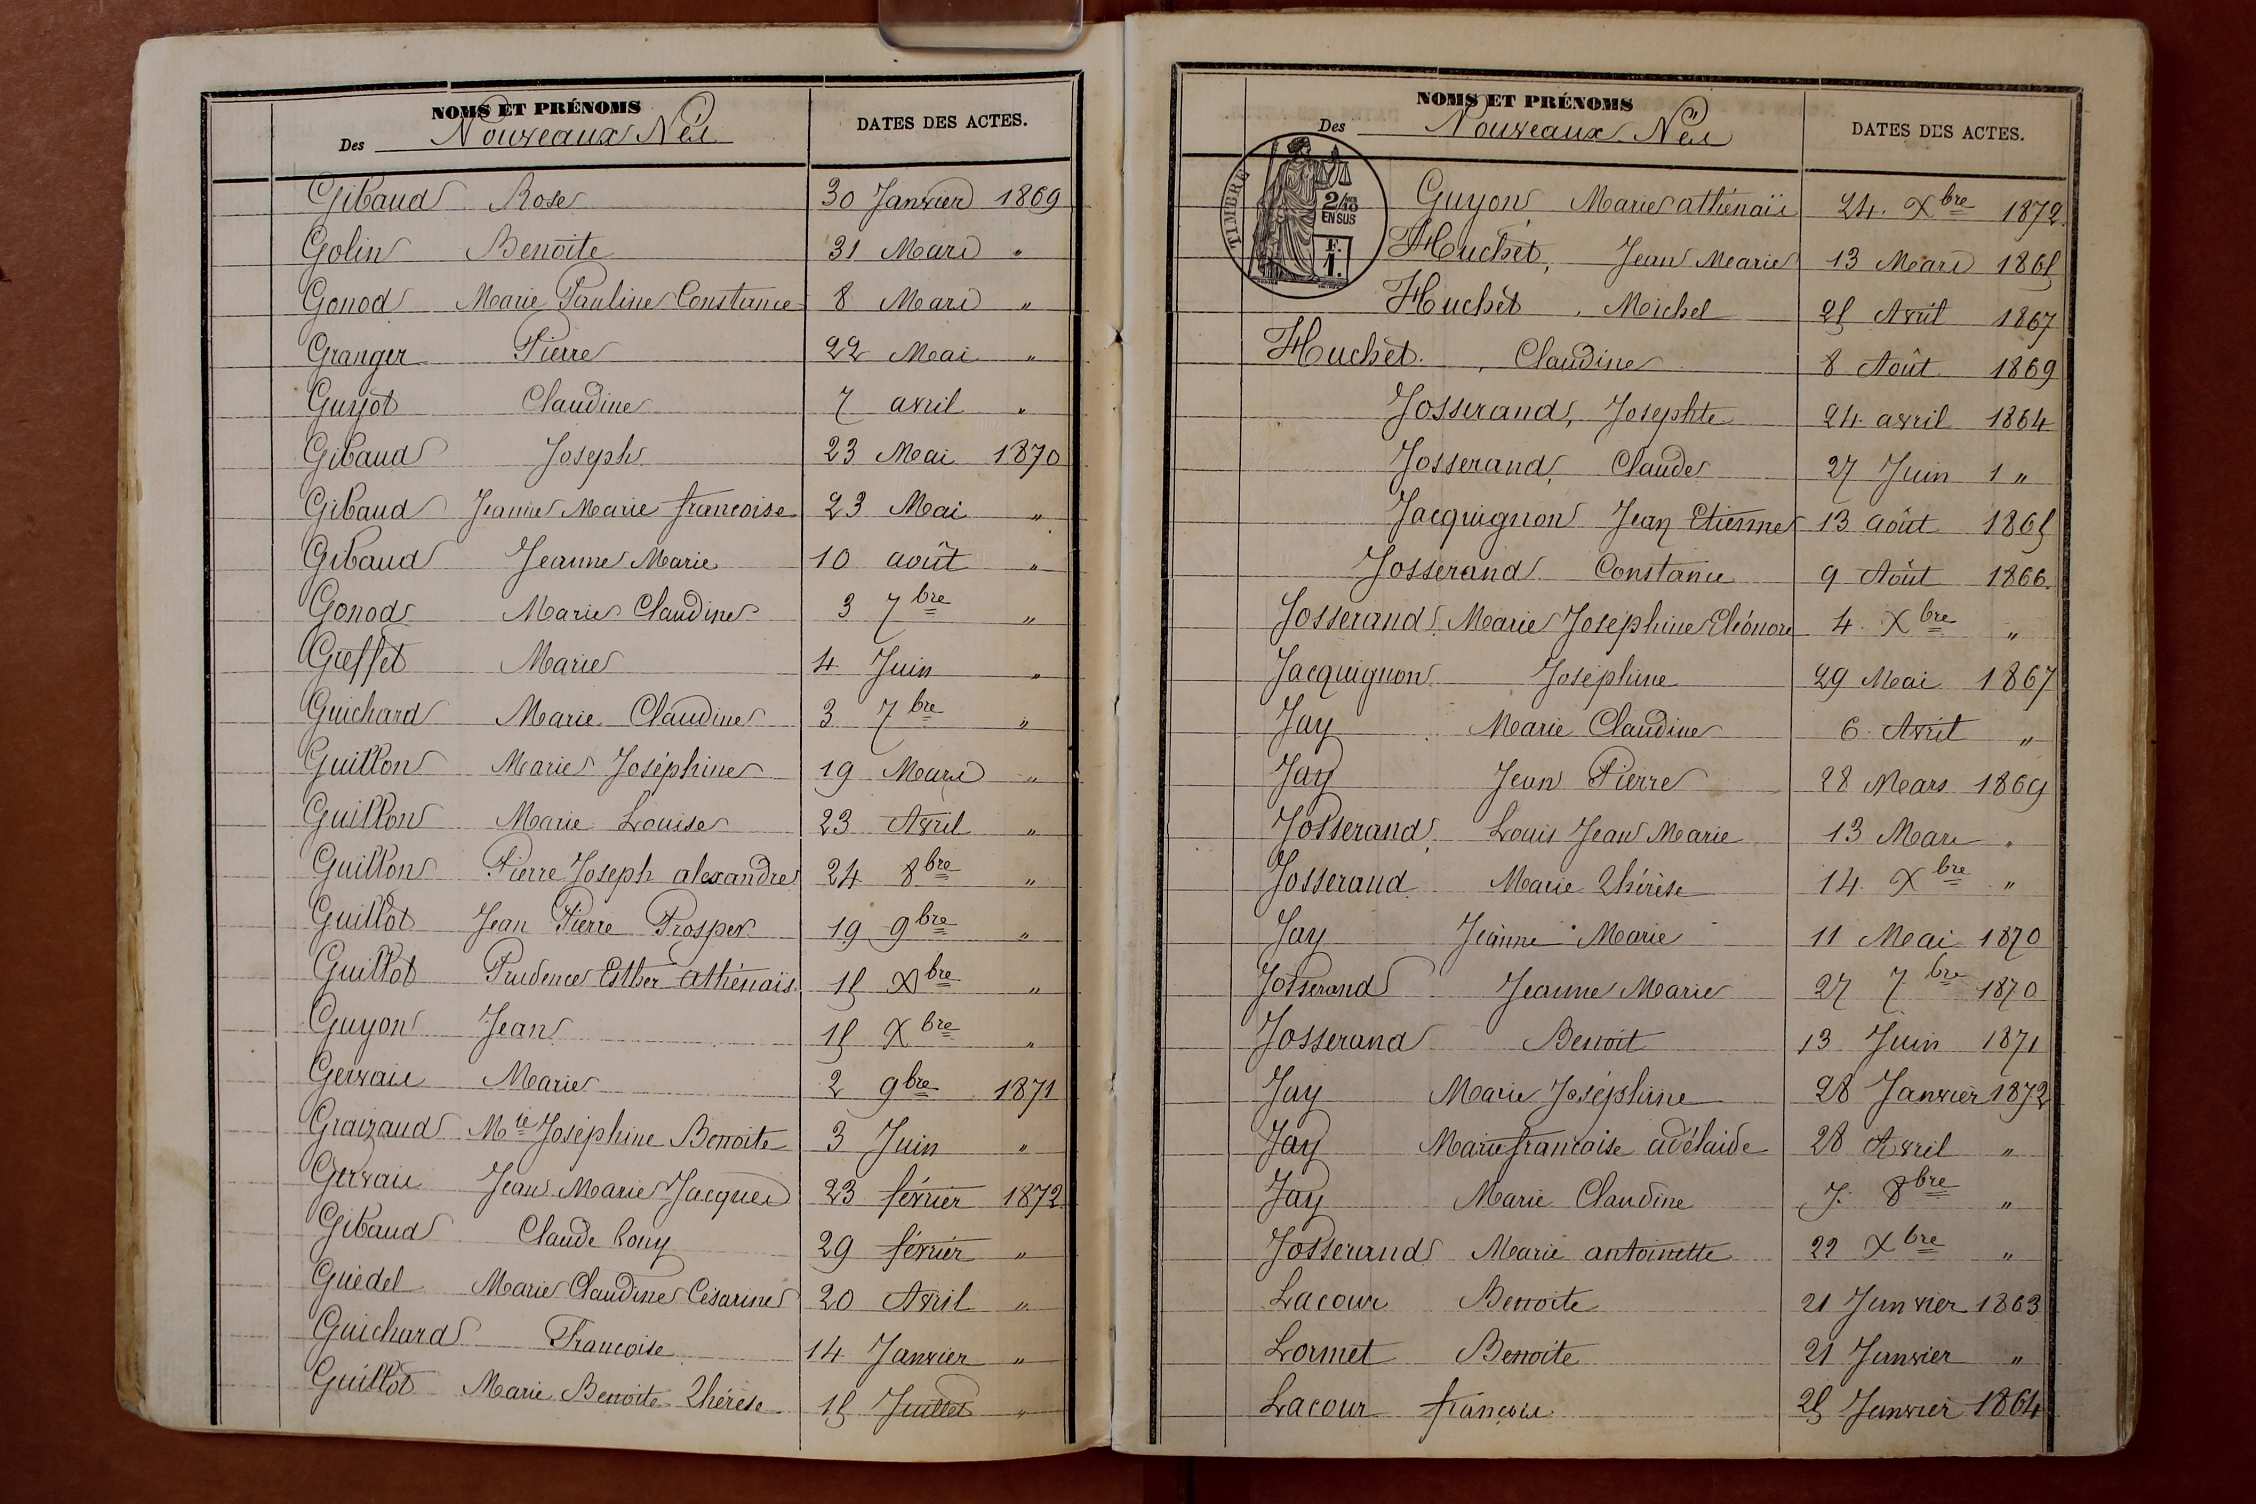 NOMS ET PRÉNOMS
Des Nouveaux Nés
DATES DES ACTES.
Gibaud Rose 30 Janvier 1869
Golin Benoîte 31 Mars "
Gonod Marie Pauline Constance 8 Mars "
Granger Pierre 22 Mai "
Guyot Claudine 7 avril "
Gibaud Joseph 23 Mai 1870
Gibaud Jeanne Marie francoise 23 Mai "
Gibaud Jeanne Marie 10 août "
Gonod Marie Claudine 3 7bre "
Greffet Marie 4 Juin "
Guichard Marie Claudine 3 7bre "
Guillon Marie Joséphine 19 Mars "
Guillon Marie Louise 23 Avril "
Guillon Pierre Joseph alexandre 24 8bre "
Guillot Jean Pierre Prosper 19 9bre "
Guillot Prudence Esther athénaïs 15 Xbre "
Guyon Jean 15 Xbre "
Gervais Marie 2 9bre 1871
Graizaud Mie Joséphine Benoite 3 Juin "
Gervais Jean Marie Jacques 23 février 1872
Gibaud Claude Rony 29 février "
Guédel Marie Claudine Césarine 20 Avril "
Guichard Francoise 14 Janvier "
Guillot Marie Benoite Thérèse 15 Juillet "
NOMS ET PRÉNOMS
Des Nouveaux Nés
DATES DES ACTES.
TIMBRE
2/10 EN SUS
F.
1.
Guyon, Marie athénaïs 24. Xbre 1872.
Huchet, Jean Marie 13 Mars 1865
Huchet, Michel 25 Avril 1867
Huchet, Claudine 8 Août 1869
Josserand, Josephte 24 avril 1864
Josserand, Claude 27 Juin 1 "
Jacquignon Jean Etienne 13 août 1865
Josserand Constance 9 Août 1866.
Josserand Marie Joséphine Eléonore 4. Xbre "
Jacquignon Joséphine 29 Mai 1867
Jay Marie Claudine 6. Avril "
Jay Jean Pierre 28 Mars 1869
Josserand Louis Jean Marie 13 Mars "
Josserand Marie Thérèse 14. Xbre "
Jay Jeanne Marie 11 Mai 1870
Josserand Jeanne Marie 27 7bre 1870
Josserand Benoit 13 Juin 1871
Jay Marie Joséphine 28 Janvier 1872
Jay Marie francoise adélaide 28 Avril "
Jay Marie Claudine 7. 8bre "
Josserand Marie antoinette 22 Xbre "
Lacour Benoite 21 Janvier 1863
Lormet Benoite 21 Janvier "
Lacour françois 25 Janvier 1864